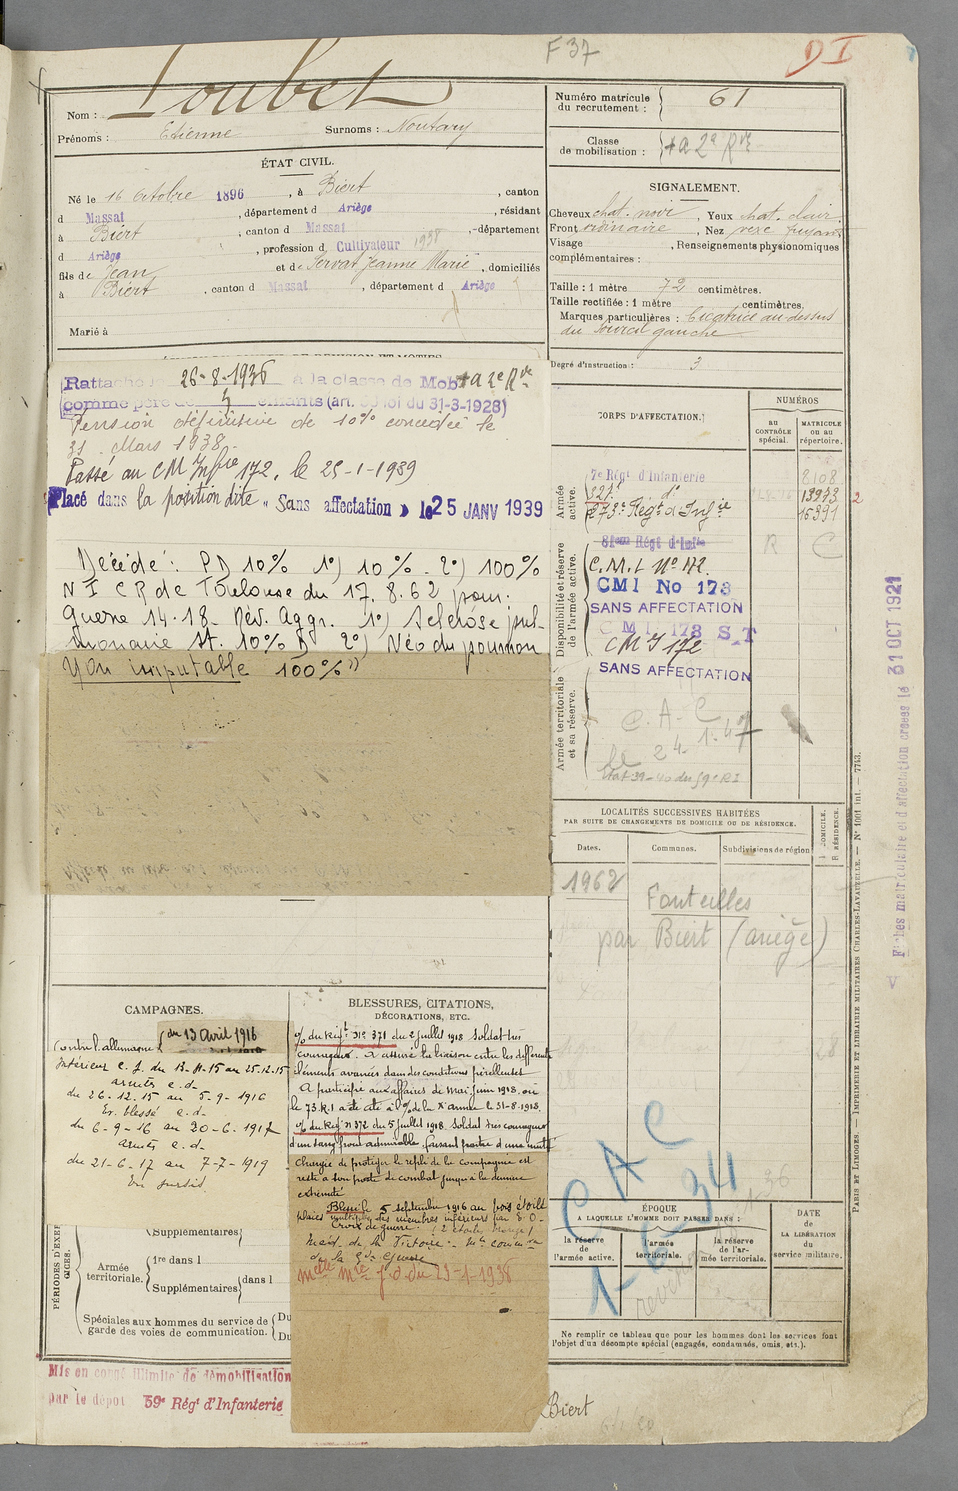 F 37
D I
Nom : Loubet
Prénoms : Etienne Surnoms : Noutary
ÉTAT CIVIL.
Né le 16 Octobre 1896, à Biert, canton
d Massat, département d Ariège, résidant
à Biert, canton d Massat, département
d Ariège, profession de Cultivateur 1938
fils de Jean et de Servat Jeanne Marie, domiciliés
à Biert, canton d Massat, département d Ariège
Marié à
Numéro matricule du recrutement : 61
Classe de mobilisation : + a 2e Rve
SIGNALEMENT.
Cheveux chat. noir, Yeux chat. clair
Front ordinaire, Nez vexe fuyant
Visage , Renseignements physionomiques
complémentaires :
Taille : 1 mètre 72 centimètres.
Taille rectifiée : 1 mètre centimètres.
Marques particulières : Cicatrice au-dessus
du sourcil gauche
Degré d'instruction : 3
Rattaché le 26-8-1936 à la classe de Mob + a 2e Rve
comme père de 4 enfants (art. loi du 31-3-1928)
Pension définitive de 10% concédée le
31 Mars 1938
Passé au CM Infrie 172, le 25-1-1939
Placé dans la position dite « Sans affectation » le 25 JANV 1939
Décidé : PD 10% 1°) 10% - 2°) 100%
N I CR de Toulouse du 17.8.62 pour :
Guerre 14-18 - Rév. Aggr. 1°) Sclérose pul-
monaire St. 10% D 2°) Néo du poumon
Non imputable 100%"
CORPS D'AFFECTATION.
NUMÉROS
AU CONTRÔLE spécial.
MATRICULE OU AU répertoire.
Armée active.
7e Régt d'Infanterie 8108
321e do 13973 2
273e Régt d'Infie 15391
Disponibilité et réserve de l'armée active.
81eme Régt d'Infie R C
C.M.I. No 172.
CMI No 173
SANS AFFECTATION
C M I 173 S.T
CMI 172
SANS AFFECTATION
Armée territoriale et sa réserve.
C. A. C
le 24-1-47
LOCALITÉS SUCCESSIVES HABITÉES
PAR SUITE DE CHANGEMENTS DE DOMICILE OU DE RÉSIDENCE.
Dates. Communes. Subdivisions de région
D DOMICILE. R RÉSIDENCE.
1962 Fonteilles
par Biert (ariège)
CAMPAGNES.
Contre l'allemagne du 13 Avril 1916
Intérieur c. s. du 13-4-15 au 25.12.15
armées c.d.
du 26.12.15 au 5-9-1916
Ev. blessé c.d.
du 6-9-16 au 20-6-1917
armées c.d.
du 21-6-17 au 7-7-1919
En sursis.
BLESSURES, CITATIONS,
DÉCORATIONS, ETC.
O/ du Régt No 371 du 2 juillet 1918 Soldat très
courageux. A assuré la liaison entre les différents
éléments avancés dans des conditions périlleuses
A participé aux affaires de mai juin 1918. où
le 73 R.I a été cité à l'O/ de la Xe armée le 31-8-1918.
O/ du Régt No 372 du 5 juillet 1918. Soldat très courageux
d'un sang froid admirable, faisant partie d'une unité
Chargée de protéger le repli de la compagnie est
resté à son poste de combat jusqu'à la dernière
extrémité
Blessé le 5 septembre 1916 au bois étoilé
plaies multiples des membres inférieurs par E O -
Croix de guerre (2 étoiles bronze)
Med. de la Victoire - Mle comm ve
de la Gde Guerre
Melle Mre J.O. du 23-1-1938
PÉRIODES D'EXERCICES.
Supplémentaires
Armée territoriale.
1re dans l
Supplémentaires dans l
Spéciales aux hommes du service de
garde des voies de communication.
Du
Du
CAC
1-6-34
ÉPOQUE
A LAQUELLE L'HOMME DOIT PASSER DANS :
la réserve de l'armée active.
l'armée territoriale.
la réserve de l'armée territoriale.
DATE
DE LA LIBÉRATION
du service militaire.
Ne remplir ce tableau que pour les hommes dont les services font
l'objet d'un décompte spécial (engagés, condamnés, omis, etc.).
Mis en congé illimité de démobilisation
par le dépôt 59e Régt d'Infanterie
Biert
PARIS ET LIMOGES. — IMPRIMERIE ET LIBRAIRIE MILITAIRES CHARLES-LAVAUZELLE. — No 1001 int. — 7743.
Fiches matriculaire et d'affectation créées le 31 OCT 1921
V